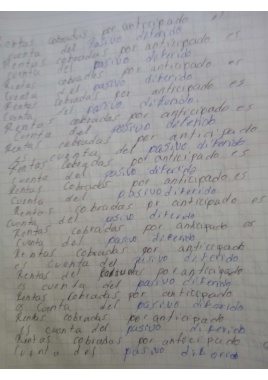 Rentas cobradas por anticipado es
cuenta del pasivo diferido
Rentas cobradas por anticipado es
cuenta del pasivo diferido
Rentas cobradas por anticipado es
cuenta del pasivo diferido
Rentas cobradas por anticipado es
cuenta del pasivo diferido.
Rentas cobradas por anticipado es
cuenta del pasivo diferido
Rentas cobradas por anticipado
es cuenta del pasivo diferido
Rentas cobradas por anticipado es
cuenta del pasivo diferido
Rentas cobradas por anticipado es
cuenta del pasivo diferido
Rentas cobradas por anticipado es
cuenta del pasivo diferido
Rentas cobradas por anticipado es
cuenta del pasivo diferido
Rentas cobradas por anticipado
es cuenta del pasivo diferido
Rentas del por anticipado
es cuenta del pasivo diferido
Rentas cobradas por anticipado
cuenta del pasivo diferido
Rentas cobradas por anticipado
es cuenta del pasivo diferido
Rentas cobradas por anticipado
cuenta del pasivo diferido